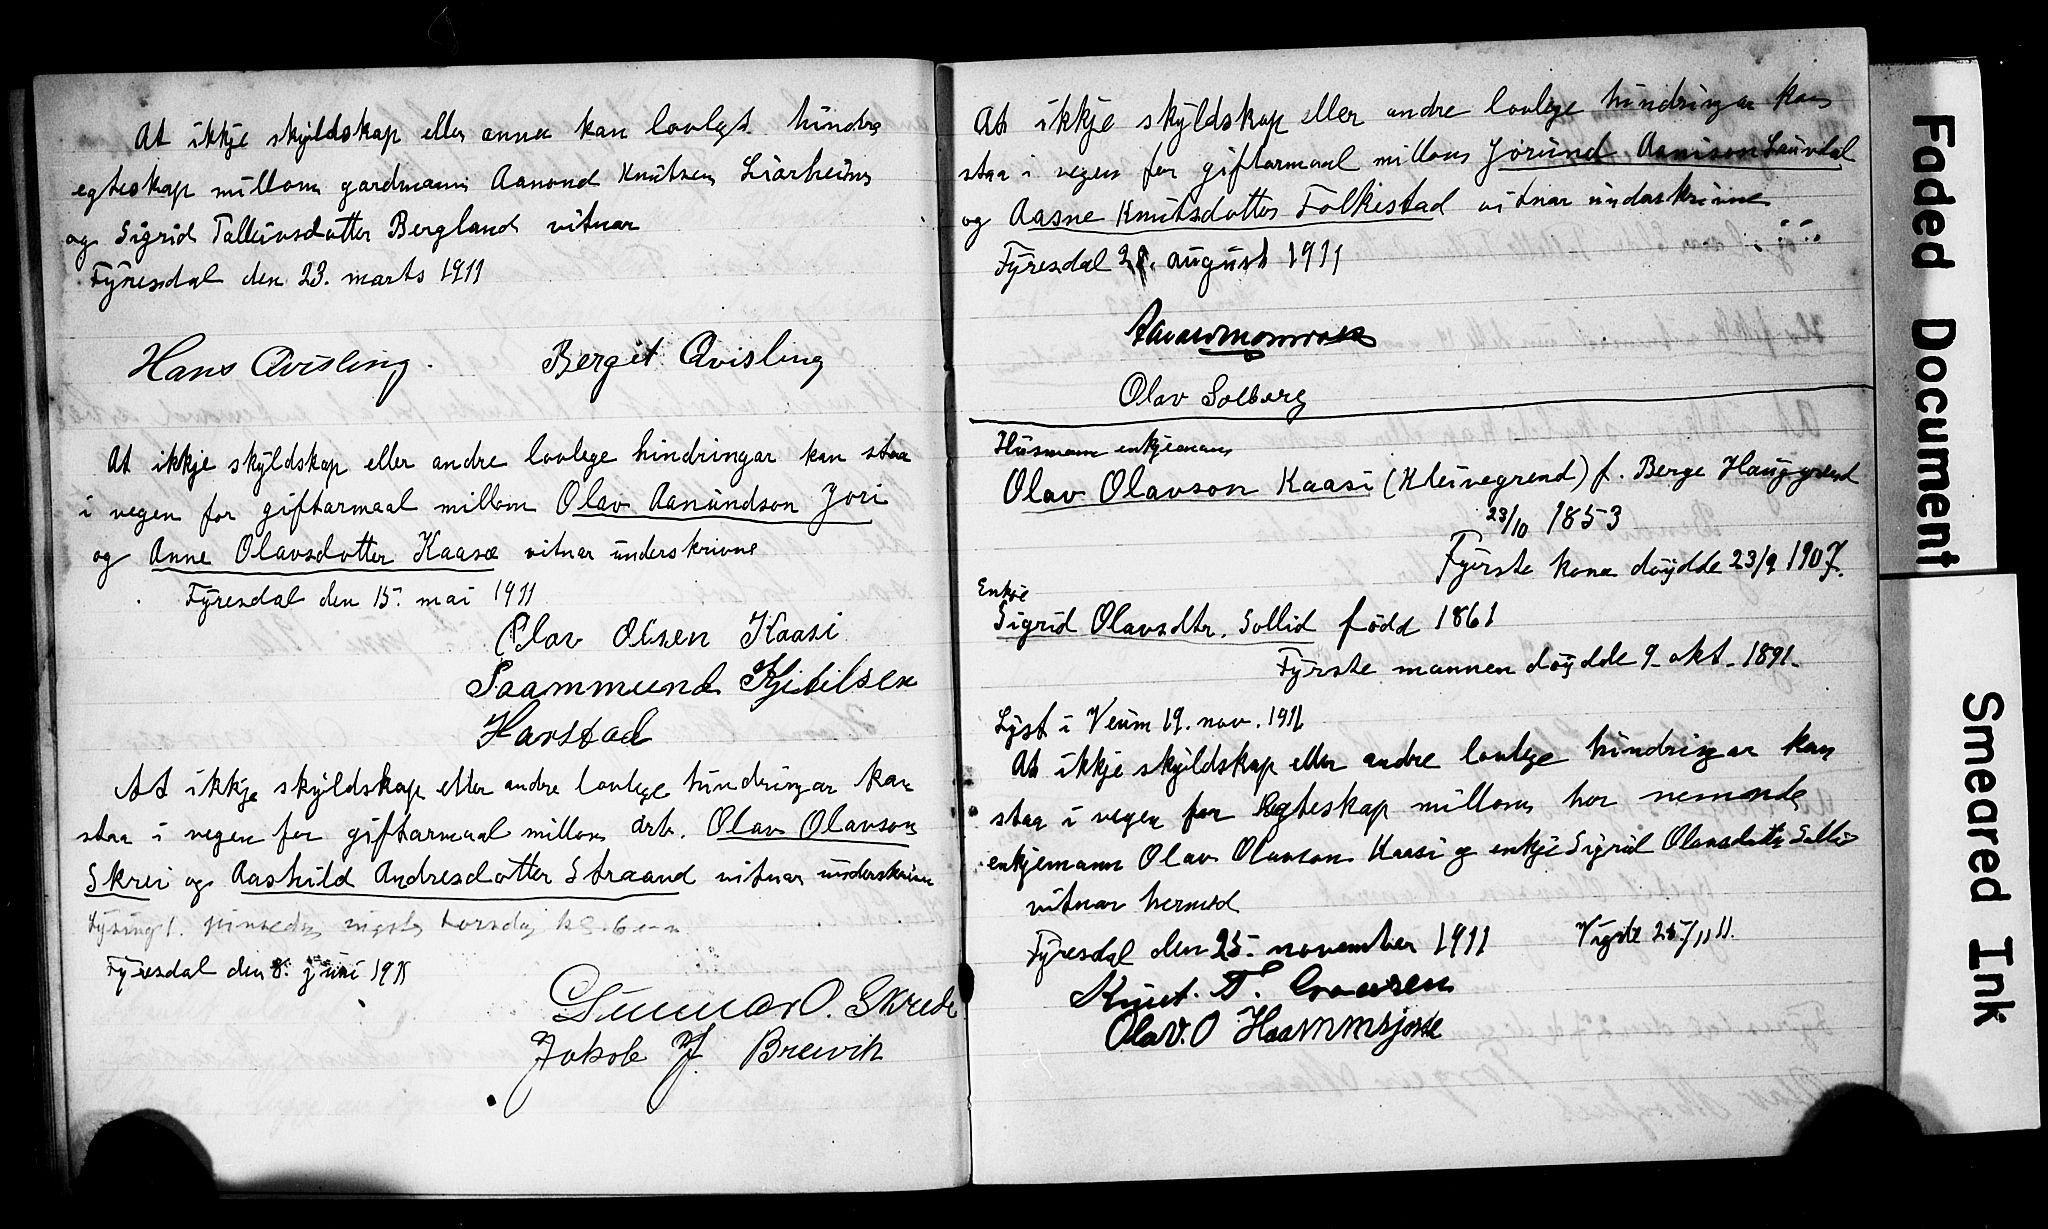 At ikkje skyldskap eller anna kan lovlegt hindra
egteskap millom gardmann Aanond Knutsen Liarheim
og Sigrid Talleivsdotter Bergland vitnar
Fyresdal den 23. marts 1911
Hans Qvisling. Bergit Qvisling
At ikkje skyldskap eller andre lovlege hindringar kan staa
i vegen for giftarmaal millom Olav Aanundson Jori
og Anne Olavsdotter Kaasa vitnar underskrivne
Fyresdal den 15. mai 1911
Olav Olsen Kaasi
Saammund Kjetilsen
Harstad
At ikkje skyldskap eller andre lovlege hindringar kan
staa i vegen for giftarmaal millom drb. Olav Olavson
Skrei og Aashild Andresdotter Straand vitnar underskrivne
Lysing 1. pinsedag torsdag kl. 6
Fyresdal den 8. juni 1911
Gunnar O. Skrede
Jakob J. Breivik
At ikkje skyldskap eller andre lovlege hindringar kan
staa i vegen for giftarmaal millom Jorund Aanison Lauvdal
og Aasne Knutsdotter Folkestad vitnar underskrivne
Fyresdal 28. august 1911
Olav Solberg
Husmann enkjemann
Olav Olavson Kaasi (Kleivegrend) f. Berge Hauggrend
23/10 1853
Fyrste kona døydde 23/9 1907.
Enkje
Sigrid Olavsdtr. Sollid fødd 1861
Fyrste mannen døydde 9. okt. 1891.
Lyst i Veum 19. nov. 1911
At ikkje skyldskap eller andre lovlege hindringar kan
staa i vegen for egteskap millom her nemnde
enkjemann Olav Olavson Kaasi og enkje Sigrid Olavsdotter Sollid
vitnar hermed
Fyresdal den 25. november 1911 Vigde 25/11 11.
Knut. T.
Olav. O
Faded Document
Smeared Ink